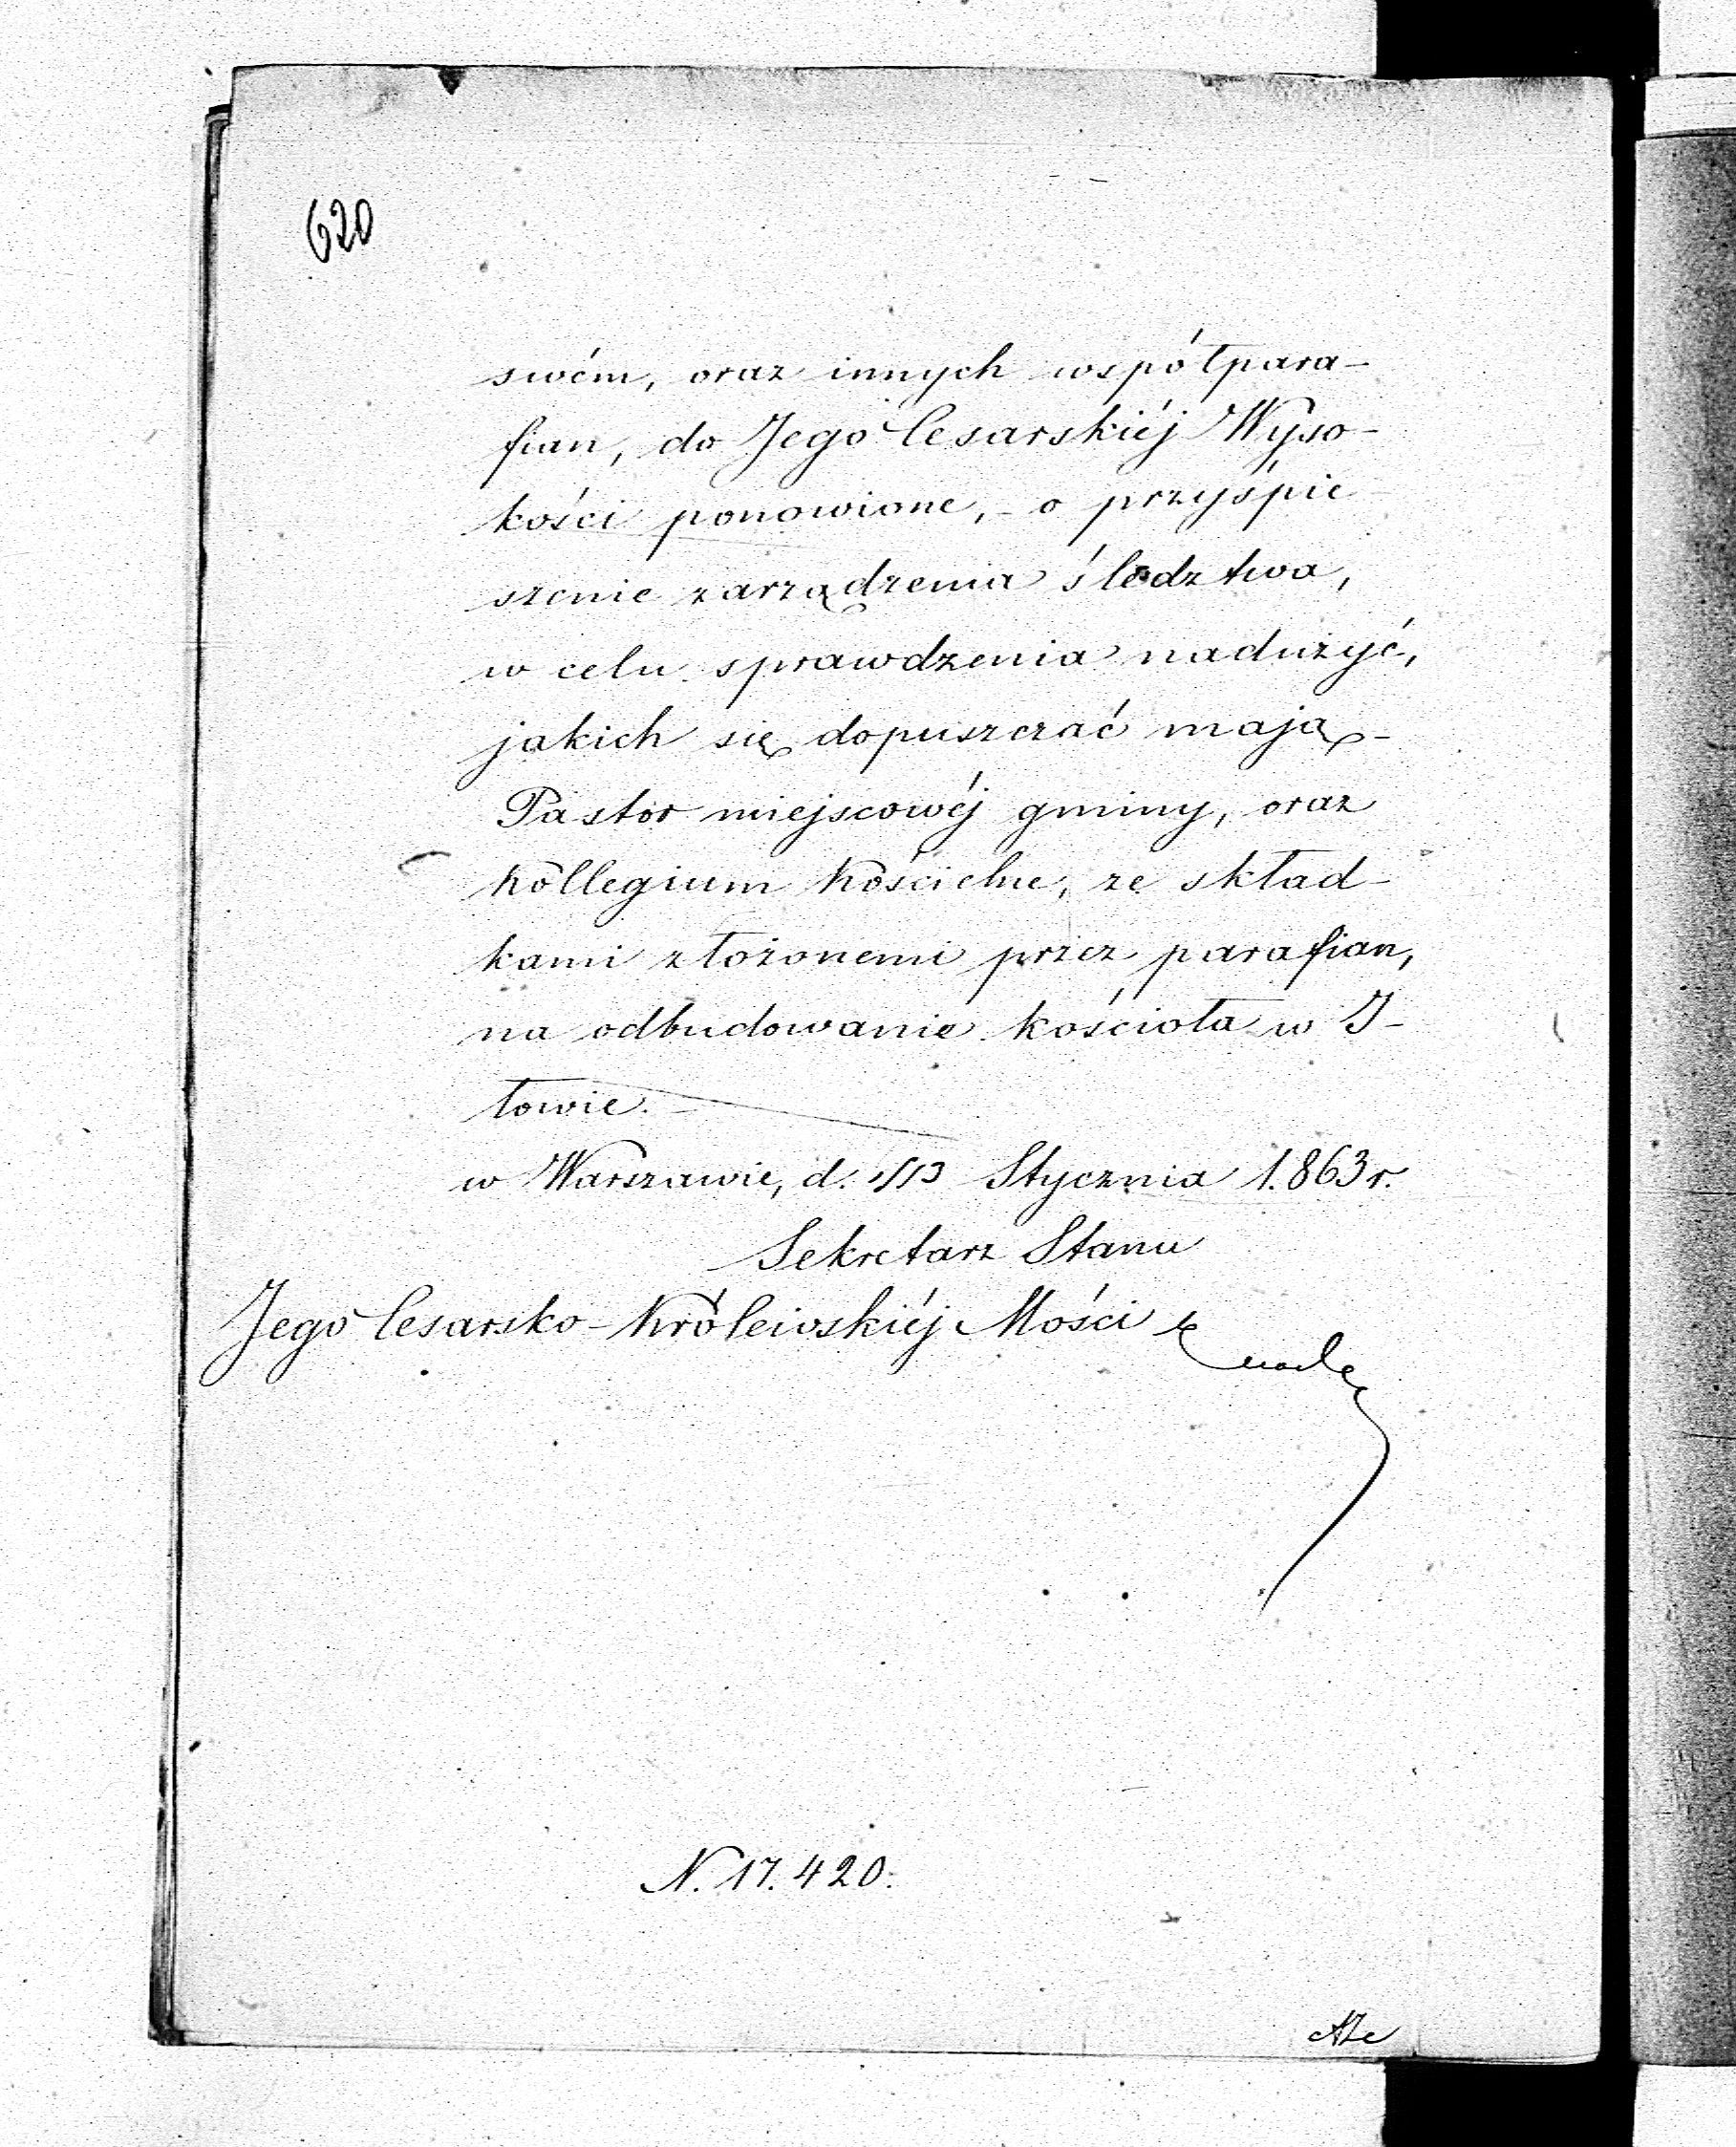 620
swém, oraz innych współpara-
fian, do Jego Cesarskiéj Wyso-
kości ponowione, - o przyśpie
szenie zarządzenia śledztwa,
w celu sprawdzenia nadużyć,
jakich się dopuszczać mają -
Pastor miejscowéj gminy, oraz
Kollegium Kościelne, ze skład-
kami złożonemi przez parafian,
na odbudowanie kościoła w I-
łowie. -
w Warszawie, d. 1/13 Stycznia 1.863 r.
Sekretarz Stanu
Jego Cesarsko-Królewskiéj Mości
N. 17.420.